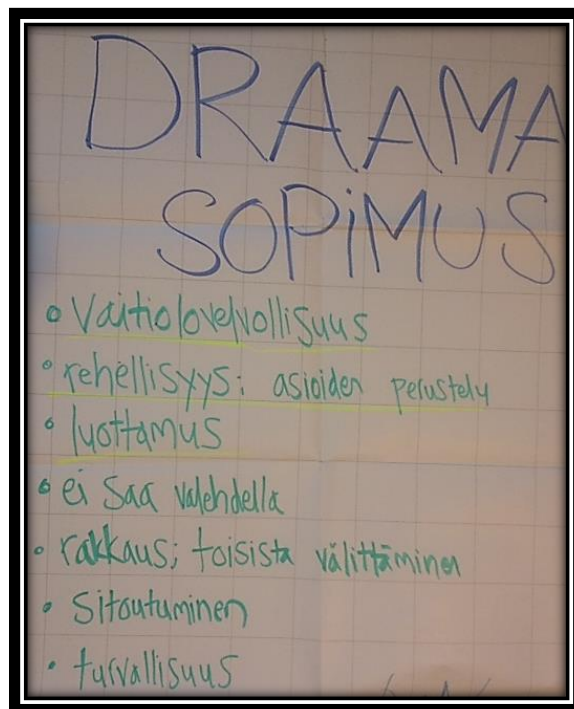 DRAAMA
SOPIMUS
• Vaitiolovelvollisuus
• rehellisyys; asioiden perustelu
• luottamus
• ei saa valehdella
• rakkaus; toisista välittäminen
• Sitoutuminen
• turvallisuus